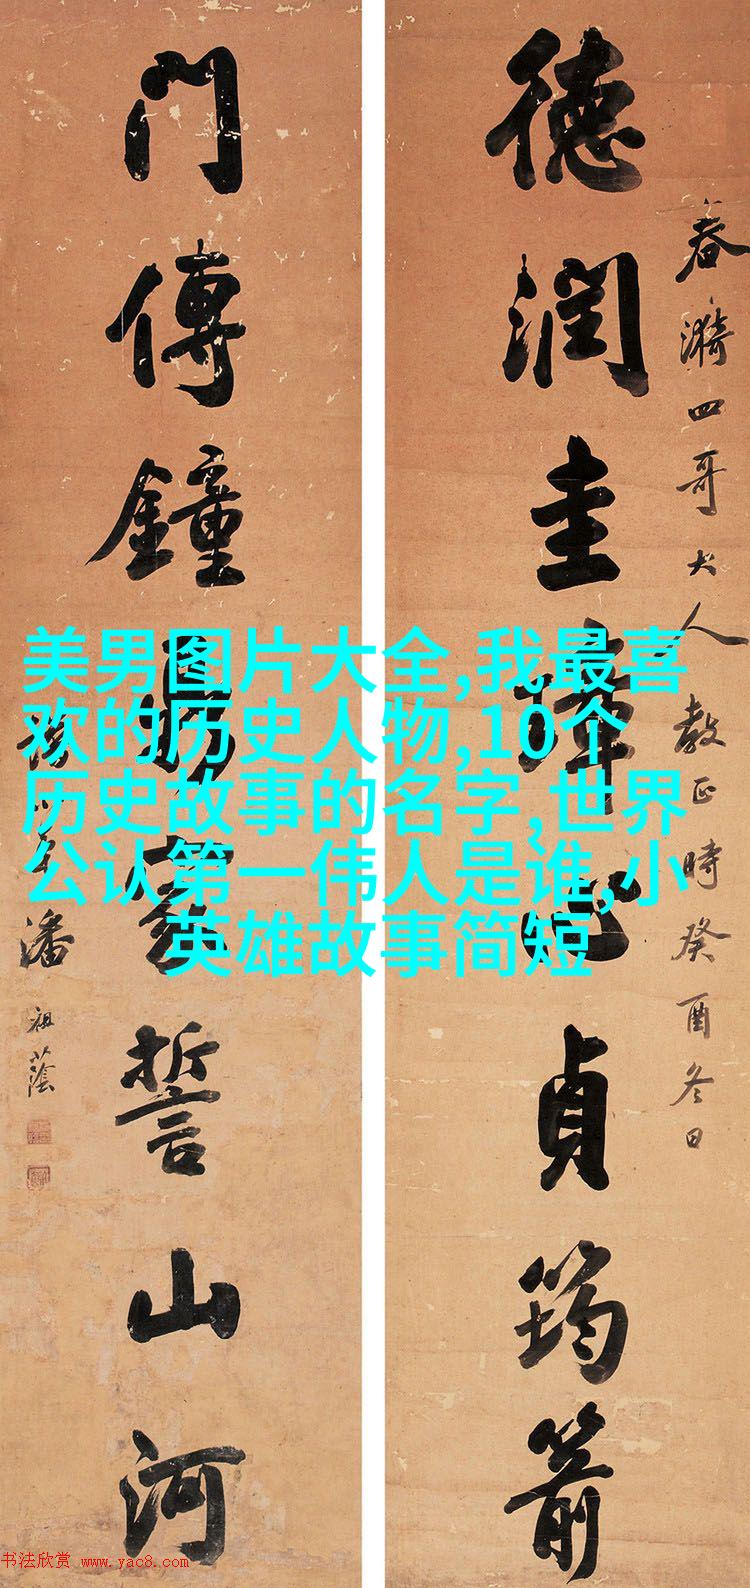 春漪四哥大人教正時癸酉冬日
德潤圭璋心貞筠箭
門傳鐘鼎家誓山河
潘祖蔭
美男图片大全,我最喜
欢的历史人物,10个
历史故事的名字,世界
公认第一伟人是谁,小
英雄故事简短
书法欣赏 www.yac8.com